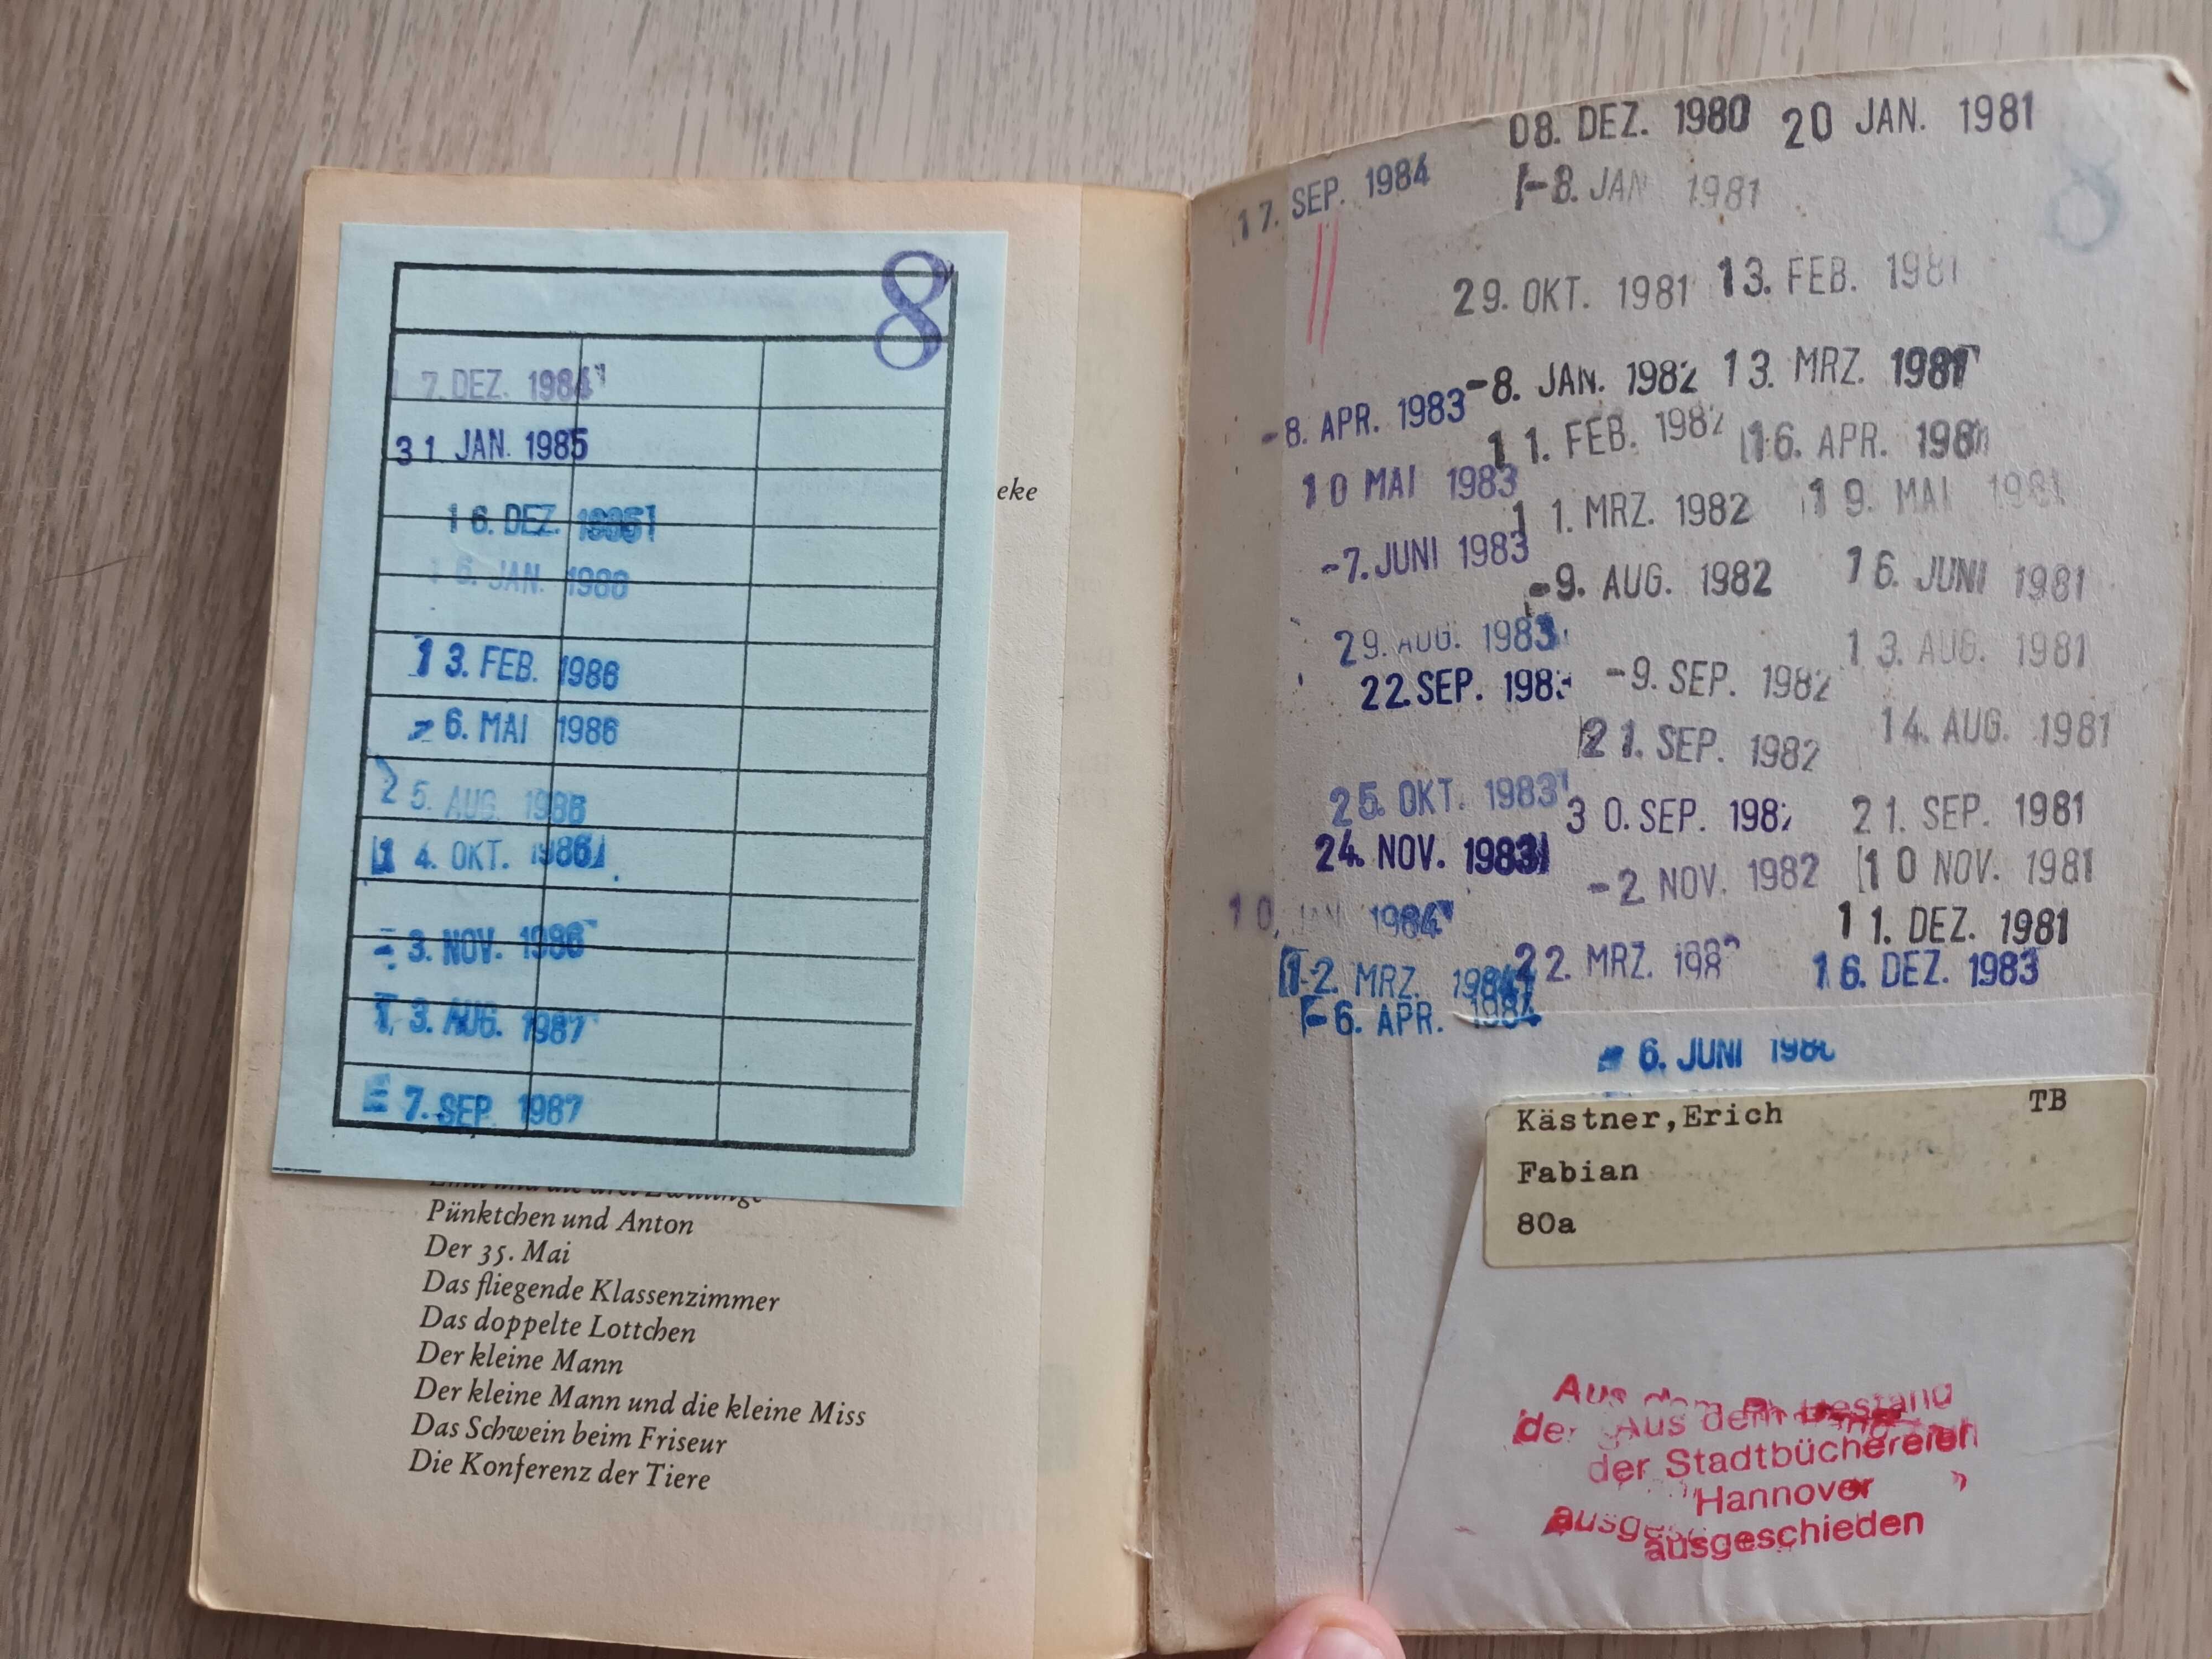 8
7. DEZ. 1984
31 JAN. 1985
16. DEZ. 1985
16. JAN. 1986
13. FEB. 1986
- 6. MAI 1986
25. AUG. 1986
14. OKT. 1986
- 3. NOV. 1986
13. AUG. 1987
- 7. SEP. 1987
eke
Emil und die drei Zwillinge
Pünktchen und Anton
Der 35. Mai
Das fliegende Klassenzimmer
Das doppelte Lottchen
Der kleine Mann
Der kleine Mann und die kleine Miss
Das Schwein beim Friseur
Die Konferenz der Tiere
17. SEP. 1984
-8. APR. 1983
10 MAI 1983
-7. JUNI 1983
29. AUG. 1983
22. SEP. 1983
25. OKT. 1983
24. NOV. 1983
10. JAN 1984
12. MRZ. 1984
-6. APR. 1984
08. DEZ. 1980
-8. JAN 1981
29. OKT. 1981
-8. JAN. 1982
11. FEB. 1982
11. MRZ. 1982
-9. AUG. 1982
-9. SEP. 1982
21. SEP. 1982
30. SEP. 198
-2. NOV. 1982
22. MRZ. 198
20 JAN. 1981
13. FEB. 1981
13. MRZ. 1981
16. APR. 1981
19. MAI 1981
16. JUNI 1981
13. AUG. 1981
14. AUG. 1981
21. SEP. 1981
10 NOV. 1981
11. DEZ. 1981
16. DEZ. 1983
- 6. JUNI 198
8
Kästner,Erich TB
Fabian
80a
Aus dem Bestand
der Stadtbücherei
Hannover
ausgeschieden